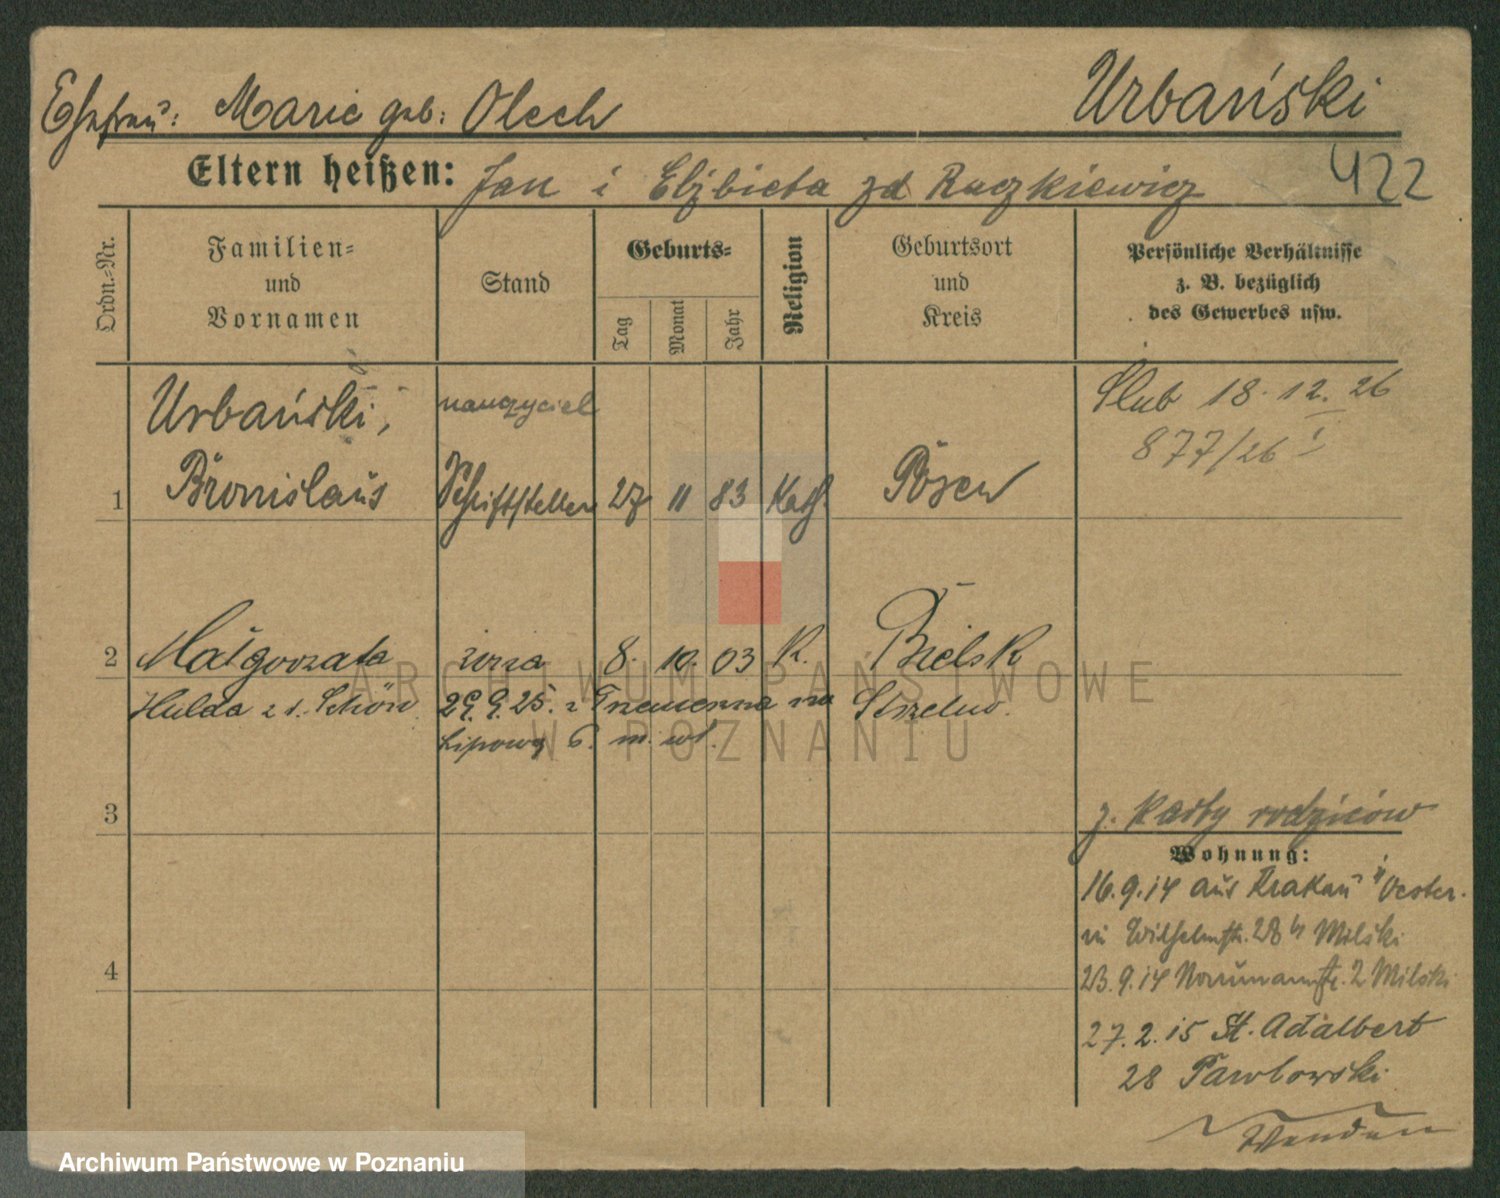 Ehefrau: Marie geb: Olech
Urbański
Eltern heißen: Jan i Elżbieta zd Raczkiewicz
422
Ordn.-Nr.
Familien- und Vornamen
Stand
Geburts-
Tag
Monat
Jahr
Religion
Geburtsort und Kreis
Persönliche Verhältnisse z. B. bezüglich des Gewerbes usw.
1
Urbański,
Bronislaus
nauczyciel
Schriftsteller
27 11 83 Kath.
Posen
Ślub 18. 12. 26
877/26
2
Małgorzata
żona
8. 10. 03 K.
Bielsk
Hulda z d. Schön
29.9.25. z Tremessna na
Strzelno.
Lipową 6. m. wł.
3
z. Karty rodziców
Wohnung:
16.9.14 aus Krakau Oester.
in Wilhelmstr. 28 Milski
4
23.9.14 Naumannstr. 2 Milski
27.2.15 St. Adalbert
28 Pawlowski
Wenden
ARCHIWUM PAŃSTWOWE
W POZNANIU
Archiwum Państwowe w Poznaniu